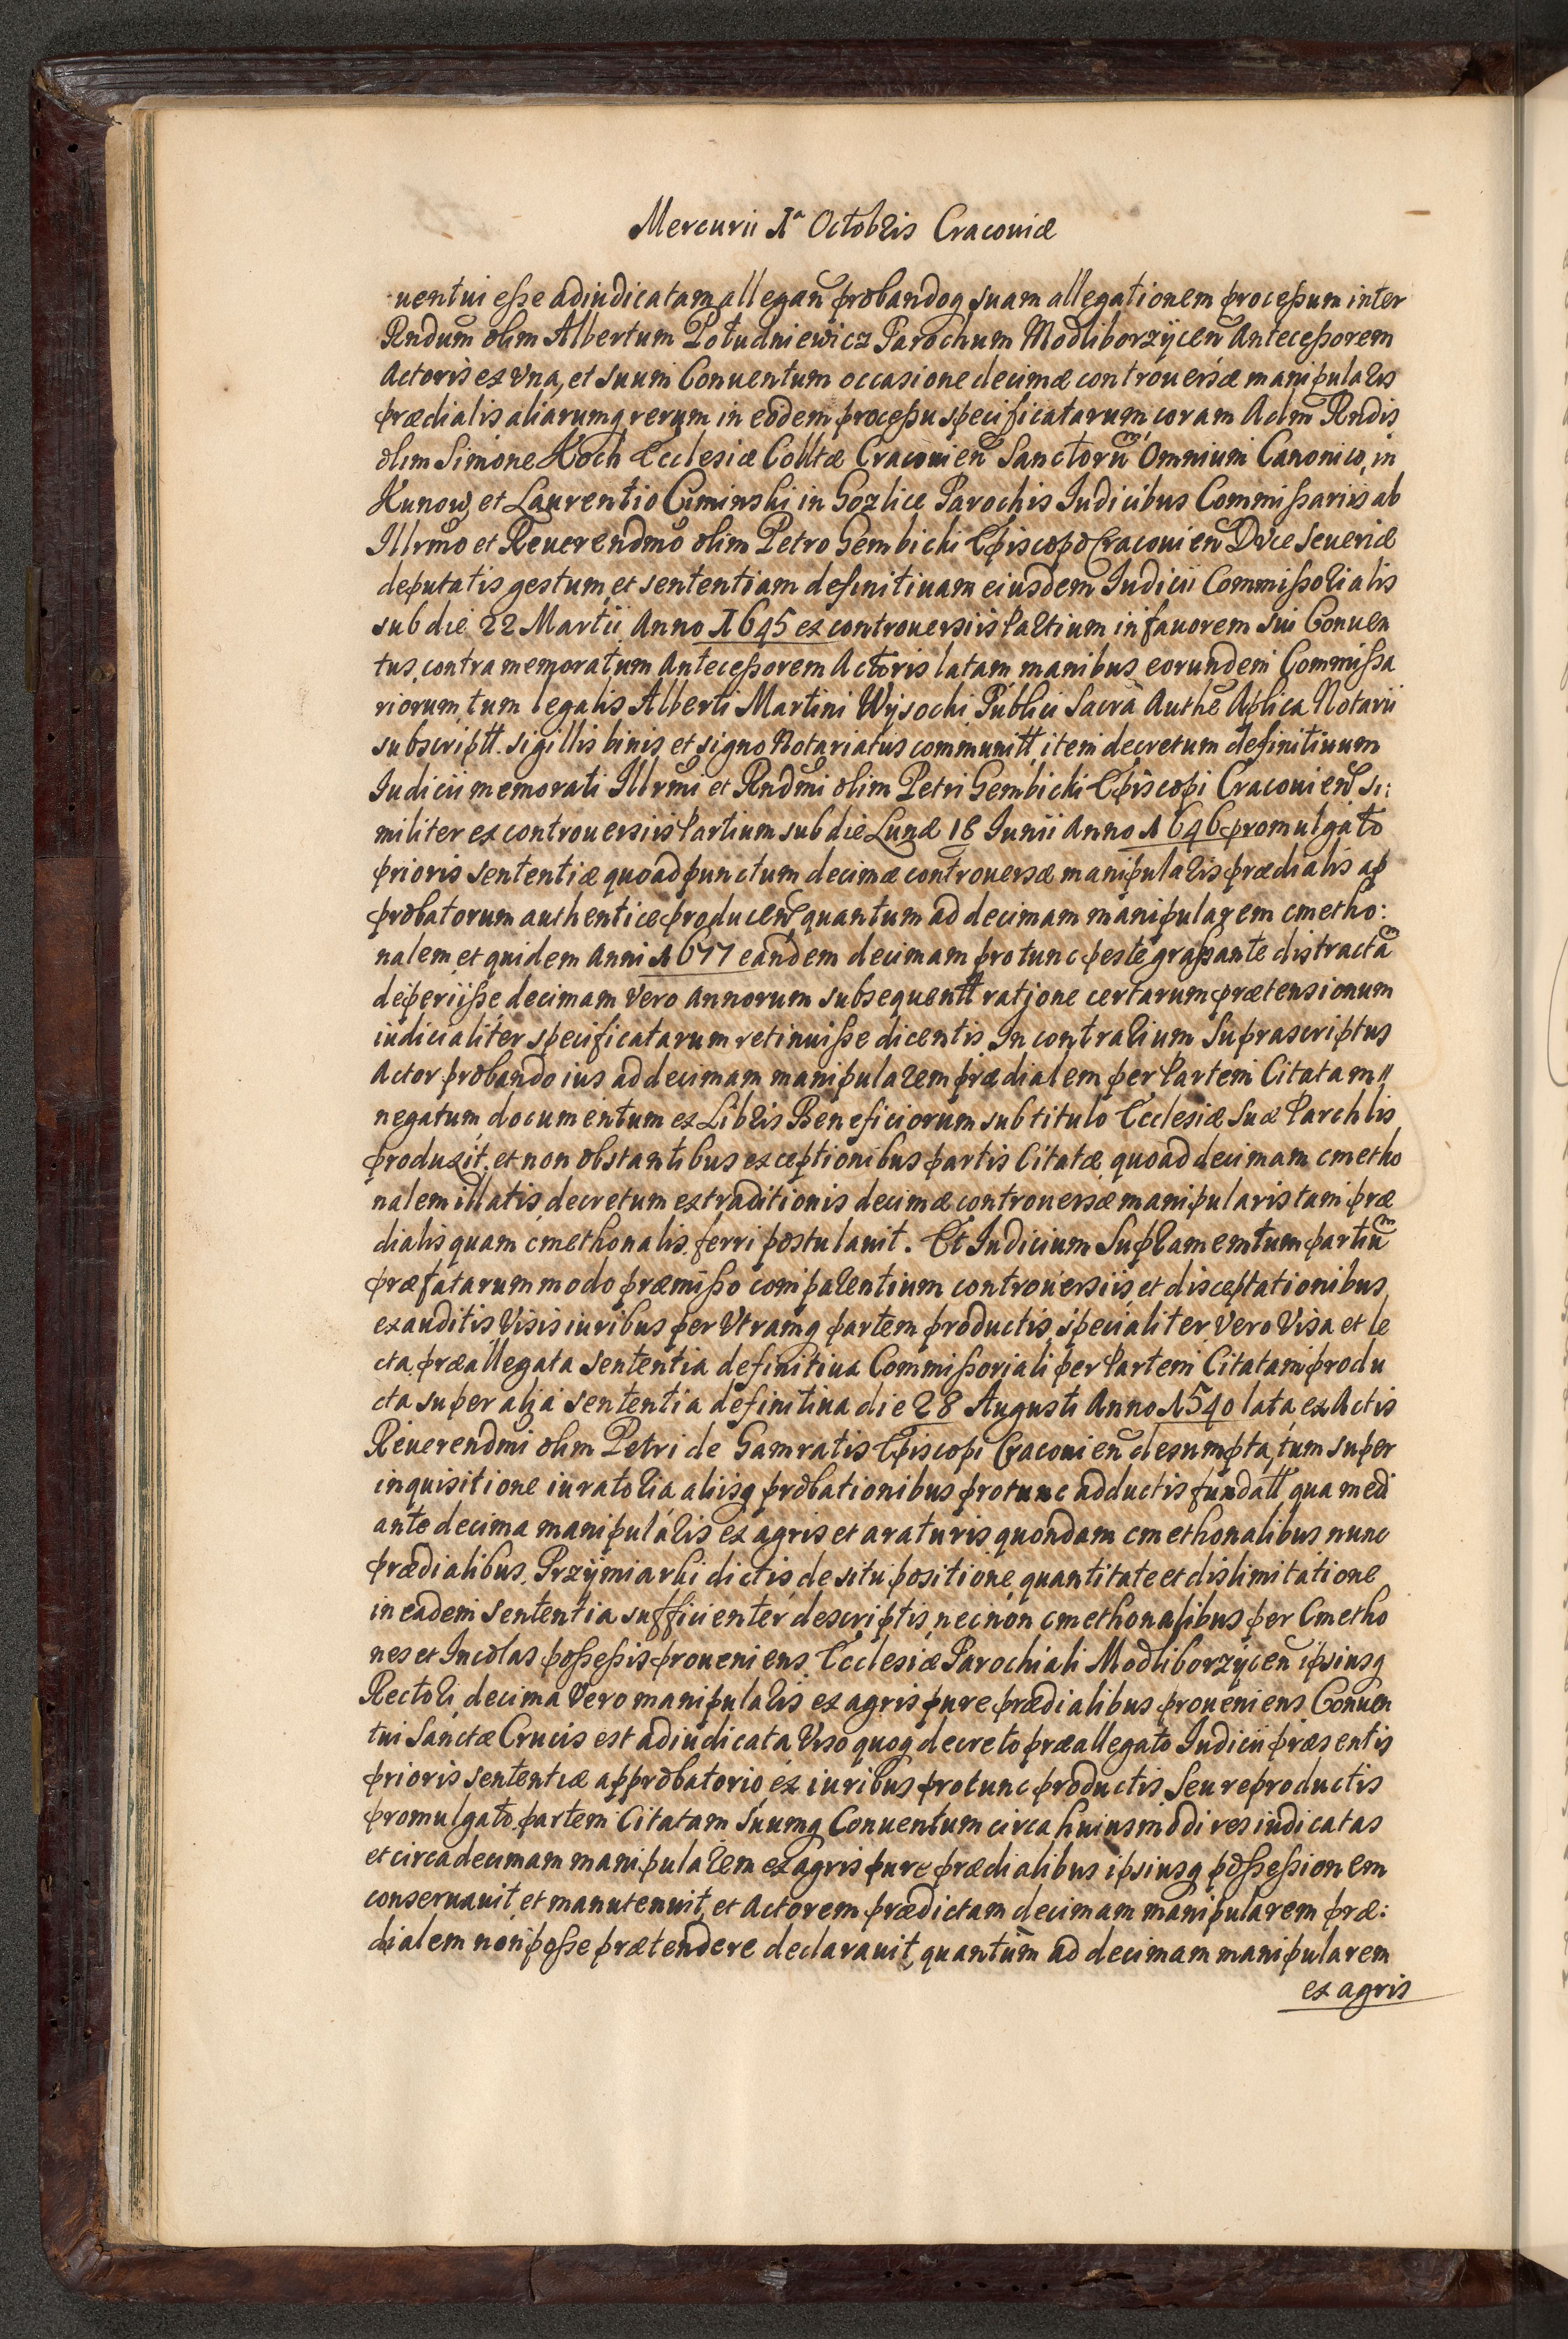 Mercurii 1ᵃ Octobris Cracoviæ
uentui eſse adiudicatam allegan̄ probandoq suam allegationem proceſsum inter
Rndum̄ olim Albertum Południewicz Parochum Modliborzÿcen̄ Anteceſsorem
Actoris ex Vna, et suum Conuentum occasione decimæ controuersæ manipularis
prædialis aliarumq rerum in eodem proceſsu specificatarum, coram Adm̄ Rndis
olim Simone Koch Ecclesiæ Colltæ Cracouien̄ Sanctorū Omnium Canonico, in
Kunow, et Laurentio Ciminski in Gozlice Parochis Iudicibus Commiſsariis ab
Illrmo et Reuerendmo olim Petro Gembicki Episcopo Cracouien̄ Duce Seueriæ
deputatis gestum, et sententiam definitiuam eiusdem Iudicii Commiſsorialis
sub die 22 Martii Anno 1645 ex controuersiis Partium in fauorem sui Conuen
tus, contra memoratum Anteceſsorem Actoris latam manibus eorundem Commiſsa
riorum, tum legalis Alberti Martini Wÿsocki Publici Sacrā Authe Aplica Notarii
subscriptt. sigillis binis, et signo Notariatus communitt, item decretum definitiuum
Iudicii memorati Illrmi et Rndmi olim Petri Gembicki Episcopi Cracouien̄ si:
militer ex controuersiis Partium sub die Lunæ 18 Iunii Anno 1646 promulgato
prioris sententiæ quoad punctum decimæ controuersæ manipularis prædialis ap
probatorum authentice producen̄, quantum ad decimam manipularem cmetho:
nalem, et quidem Anni 1677 eandem decimam pro tunc peste graſsante distractā
deperiiſse, decimam vero annorum subsequentt ratione certarum prætensionum
iudicialiter specificatarum retinuiſse dicentis. In contrarium Suprascriptus
Actor probando ius ad decimam manipularem prædialem per Partem Citatam //
negatum, documentum ex Libris Beneficiorum sub titulo Ecclesiæ Suæ Parchlis
produxit, et non obstantibus exceptionibus partis Citatæ quoad decimam cmetho
nalem illatis, decretum extraditionis decimæ controuersæ manipularis tam præ
dialis quam cmethonalis ferri postulauit. Et Iudicium Supramemtum partiū
præfatarum modo præmiſso comparentium controuersiis, et disceptationibus
exauditis, Visis iuribus per Vtramq partem productis, specialiter vero Visa et le
cta præallegata sententia definitiua Commiſsoriali per Partem Citatam produ
cta super alia sententia definitiua die 28 Augusti Anno 1540 lata, ex Actis
Reuerendmi olim Petri de Gamratis Episcopi Cracouien̄ desumpta, tum super
inquisitione iuratoria aliisq probationibus protunc adductis fundatt qua medi
ante decima manipularis ex agris et araturis quondam cmethonalibus nunc
prædialibus, Przÿmiarki dictis, de situ positione quantitate et dislimitatione
in eadem sententia sufficienter descriptis, necnon cmethonalibus per Cmetho
nes et Incolas poſseſsis proueniens Ecclesiæ Parochiali Modliborzÿcen̄ ipsiusq
Rectori, decima Vero manipularis ex agris pure prædialibus proueniens Conuen
tui Sanctæ Crucis est adiudicata, Viso quoq decreto præallegato Iudicii præsentis
prioris sententiæ approbatorio, ex iuribus protunc productis Seu reproductis
promulgato, partem Citatam Suumq Conuentum circa huiusmodi res iudicatas
et circa decimam manipularem ex agris pure prædialibus ipsiusq poſseſsionem
conseruauit, et manutenuit, et Actorem prædictam decimam manipularem præ:
dialem non poſse prætendere declarauit, quantum ad decimam manipularem
ex agris